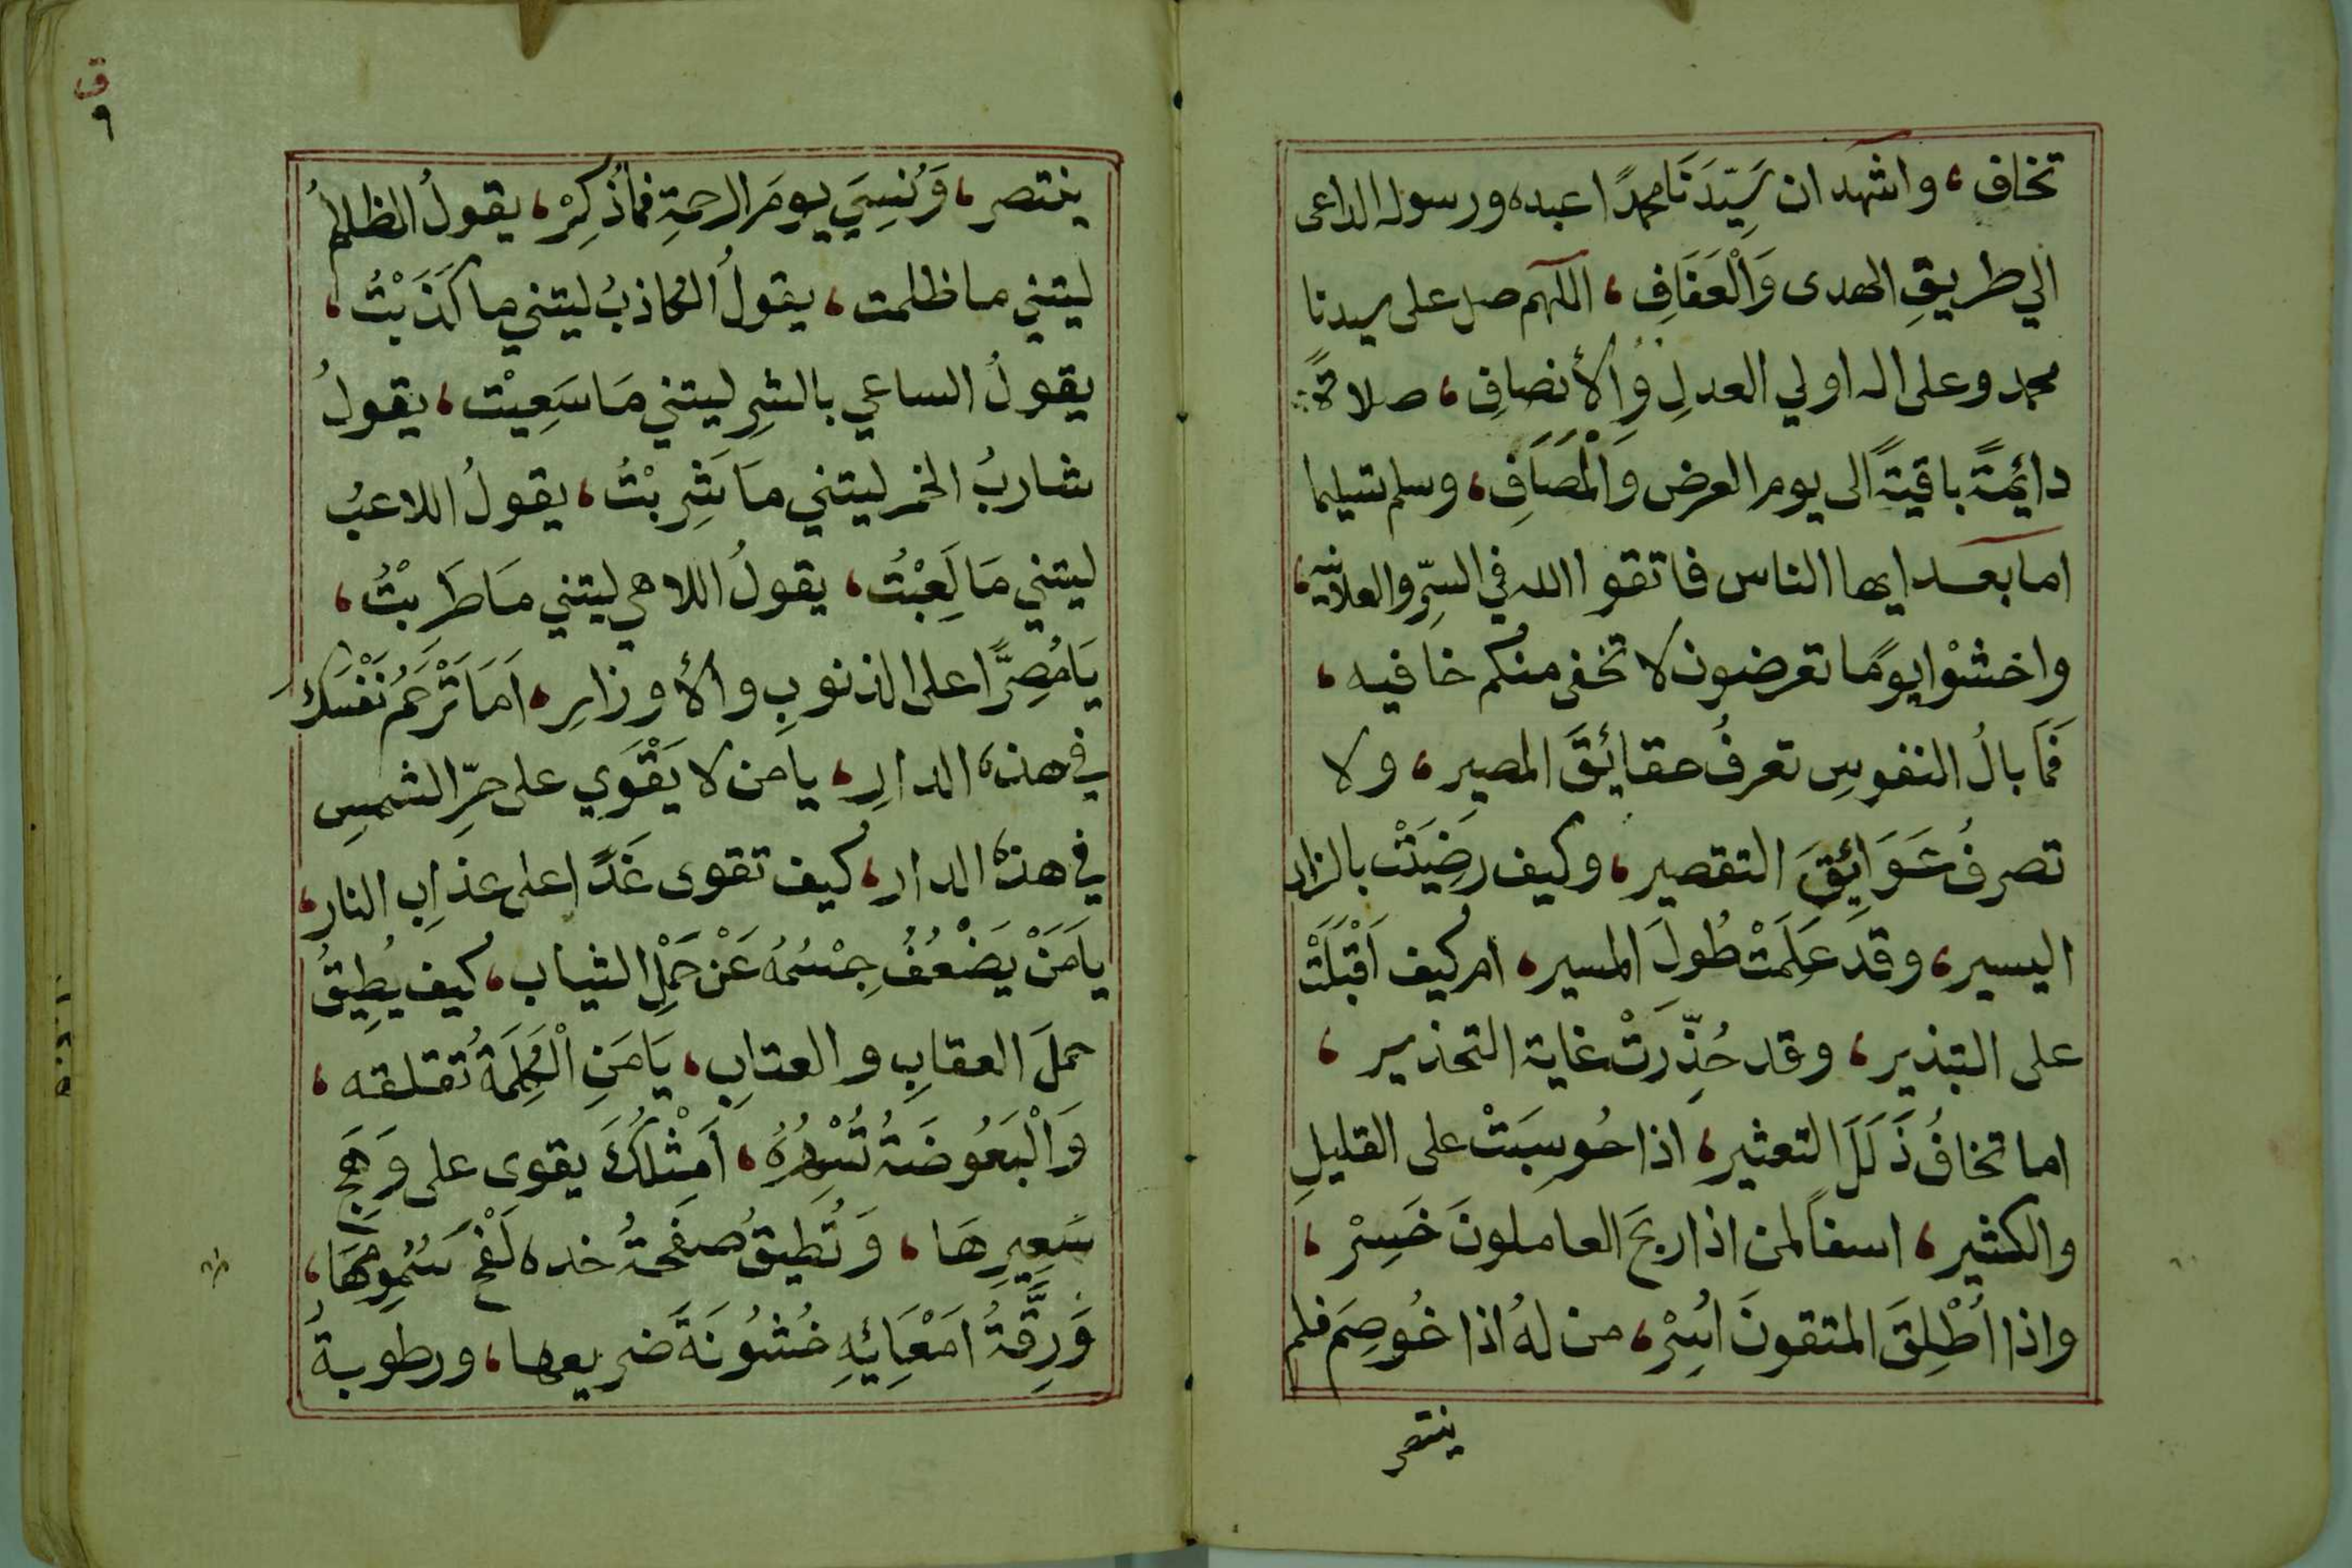 تخاف، واشهد ان سَيِّدَنَا محمدًا عبده ورسوله الداعى
الي طريقِ الهدى وَالْعَفَافِ، اللهم صل على سيدنا
محمد وعلى اله اولي العدلِ وَالأنصافِ، صلاةً
دائِمَةً باقيةً الى يوم العرض وَالْمَصَافِ، وسلم تسليما
اما بعد ايها الناس فاتقوا الله في السِّرِّ والعلانيه،
واخشَوْا يومًا تعرضون لا تخفى منكم خافيه،
فَمَا بالُ النفوسِ تعرفُ حقائِقَ المصيرِ، ولا
تصرفُ عَوَائِقَ التقصير، وكيف رَضِيَتْ بالزاد
اليسير، وقد عَلِمَتْ طُولَ المسير، ام كيف اَقْبَلَتْ
على التبذير، وقد حُذِّرَتْ غاية التحذير،
اما تخافُ زَلَلَ التعثير، اذا حُوسِبَتْ على القليلِ
والكثير، اسفاً لمن اذا ربحَ العاملونَ خَسِرْ،
واذا اُطْلِقَ المتقونَ اُسِرْ، من لهُ اذا خُوصِمَ فلم
ينتصر
ق
٩
ينتصر، وَنُسِيَ يومَ الرحمةِ فمَا ذُكِرْ، يقولُ الظالمُ
ليتني ما ظلمت، يقولُ الكاذبُ ليتني ما كَذَبْتُ،
يقولُ الساعي بالشرِ ليتني مَا سَعِيْت، يقولُ
شاربُ الخمر ليتني مَا شَرِبْتُ، يقولُ اللاعبُ
ليتني مَا لَعِبْتُ، يقولُ اللاهي ليتني مَا طَرِبْتُ،
يَا مُصِرًّا على الذنوبِ والأوزارِ، اَمَا تَرْحَمُ نَفْسَكَ
في هذه الدارِ، يا من لا يَقْوَي على حرِّ الشمسِ
في هذه الدار، كيف تقوى غَدًا على عذابِ النار،
يا مَنْ يَضْعُفُ جِسْمُهُ عَنْ حَمْلِ الثياب، كيف يُطِيقُ
حملَ العقابِ والعتابِ، يَا مَنِ الْكَلِمَةُ تُقلقه،
وَالْبَعُوضَةُ تُسْهِرُهُ، اَمِثْلُكَ يقوى على وَهَجِ
سَعِيرِهَا، وَتُطِيقُ صفحةُ خده لَفْحَ سَمُومِهَا،
وَرِقَّةُ اَمْعَائِهِ خُشُونَةَ ضريعها، ورطوبةُ